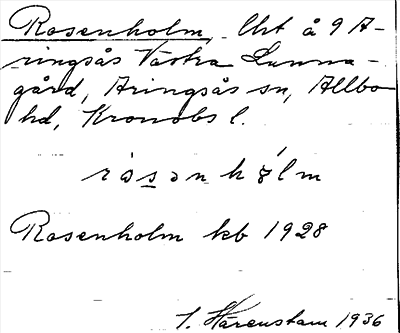 Rosenholm, lht å 9 A-
ringsås Västra Lunna-
gård, Aringsås sn, Allbo
hd, Kronobs l.
rósənhòlm
Rosenholm kb 1928
Härenstam 1936